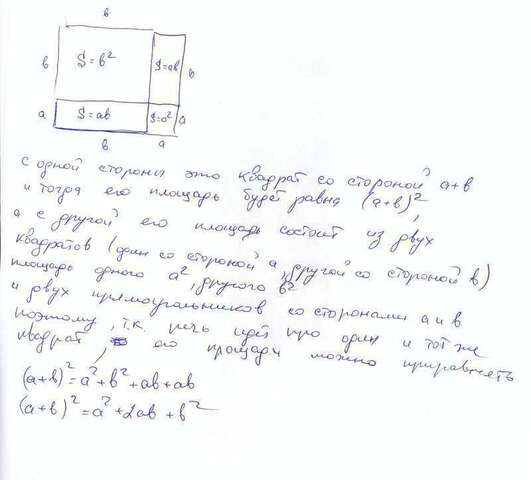 в
в S=b² S=ab в
a S=ab S=a² a
в a
с одной стороны это квадрат со стороной a+b
и тогда его площадь будет равна (a+b)²,
а с другой его площадь состоит из двух
квадратов (один со стороной a, другой со стороной b)
площадь одного a², другого b²
и двух прямоугольников со сторонами a и b
поэтому, т.к. речь идёт про один и тот же
квадрат, его площади можно приравнять
(a+b)²=a²+b²+ab+ab
(a+b)²=a²+2ab+b²